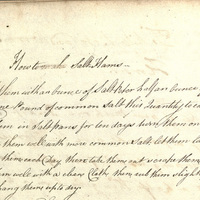 How to Salt Hams
them with an ounce of Salt Petre half an ounce
Pound of common Salt this Quantity to
in Saltpans for ten days turn them
them well with more common Salt let them
them each Day then take them out scrape them
well with a clean Cloth them
hang them up to dry